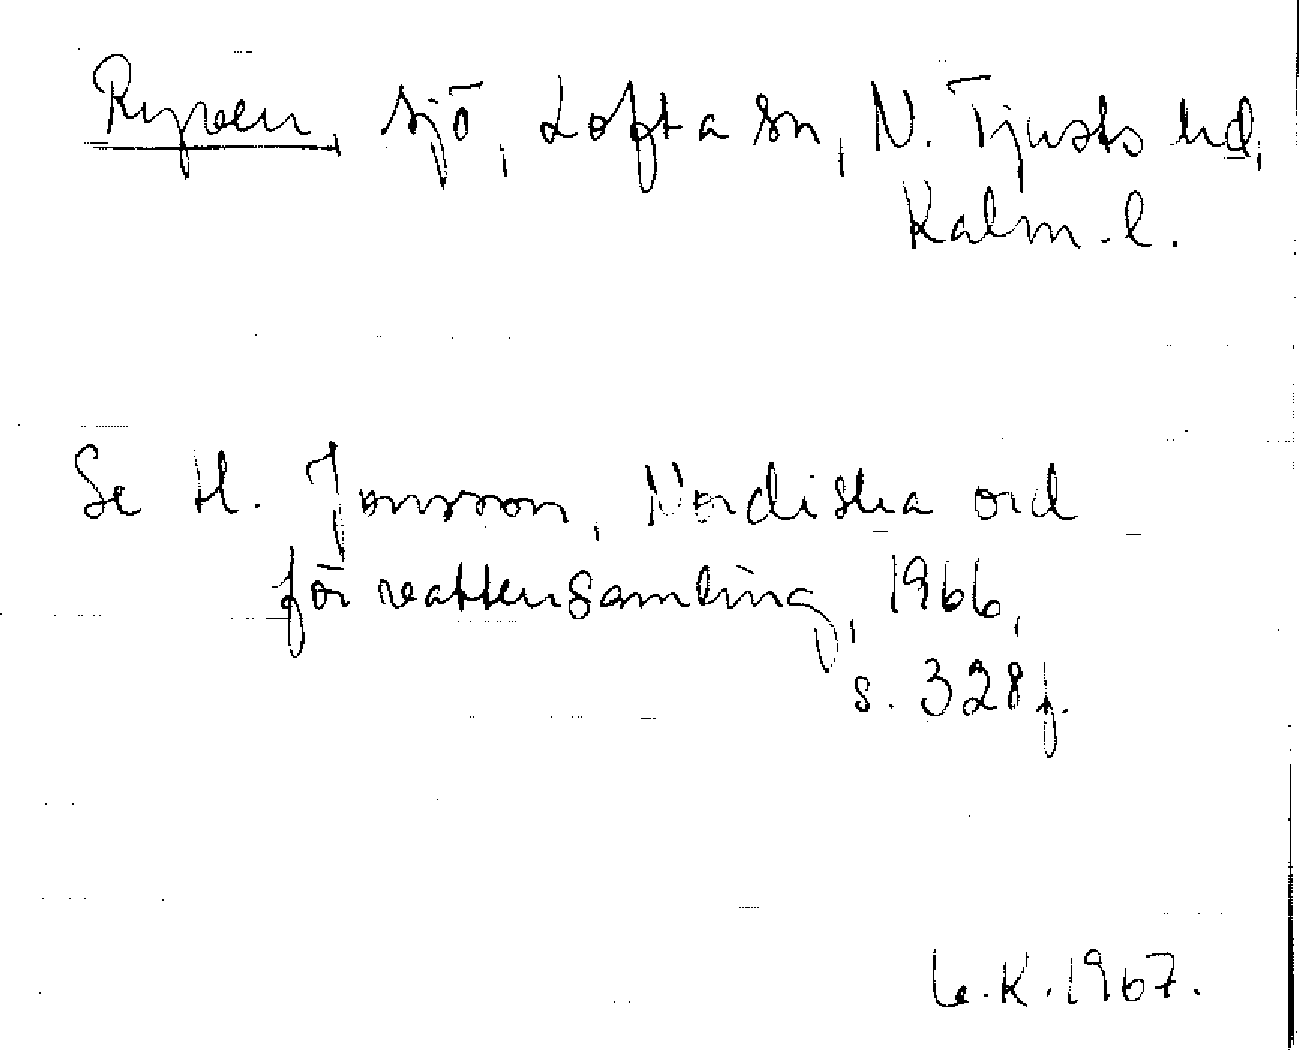 Ryven, sjö, Lofta sn, N. Tjusts hd,
Kalm. l.
Se H. Jonsson, Nordiska ord
för vattensamling, 1966,
s. 328 f.
K. 1967.